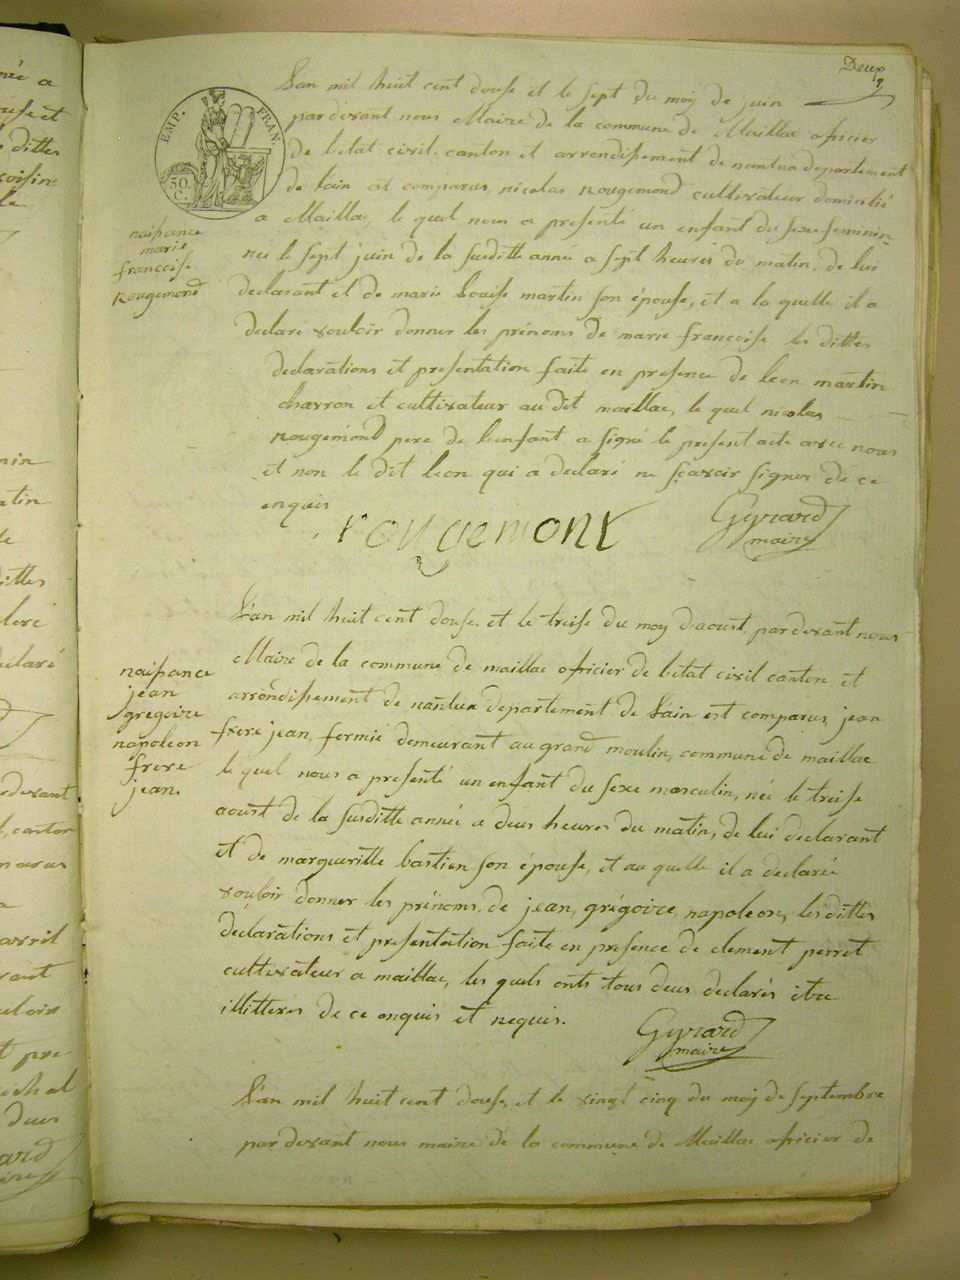 Deux
EMP. FRAN.
50.
C.
L'an mil huit cent douse et le sept du moy de juin
pardevant nous Maire de la commune de Maillac oficier
de letat civil canton et arrondissement de nantua departement
de lain est comparus nicolas rougemond cultivateur domicilié
a Maillac, le quel nous a presenté un enfant du sexe feminin
née le sept juin de la susditte année a sept heures du matin, de lui
declarant et de marie Louise martin son épouse, et a la quelle il a
declaré vouloir donner les prénoms de marie francoise les dittes
declarations et presentation faite en presence de leon martin
charron et cultivateur au dit maillac, le quel nicolas
rougemond pere de lenfant a signé le present acte avec nous
et non le dit leon qui a declaré ne sçavoir signer de ce
enquis
naissance
marie
francoise
rougemond
rougemont
Gyrard
maire
L'an mil huit cent douse, et le treise du moy daoust, pardevant nous
Maire de la commune de maillac oficier de letat civil canton et
arrondissement de nantua departement de Lain est comparus jean
frere jean, fermié demeurant au grand moulin, commune de maillac
le quel nous a presenté un enfant du sexe masculin, née le treise
aoust de la susditte année a deux heures du matin, de lui declarant
et de margueritte bastien son épouse, et au quelle il a declarée
vouloir donner les prénoms, de jean, grégoire, napoleon, les dittes
declarations et presentation faite en presence de clement perret
cultivateur a maillac, les quels onts tous deux declarés etre
illitteres de ce enquis et requis.
naissance
jean
gregoire
napoleon
frere
jean.
Gyrard
maire
L'an mil huit cent douse, et le vingt cinq du moy de septembre
pardevant nous maire de la commune de Maillac oficier de